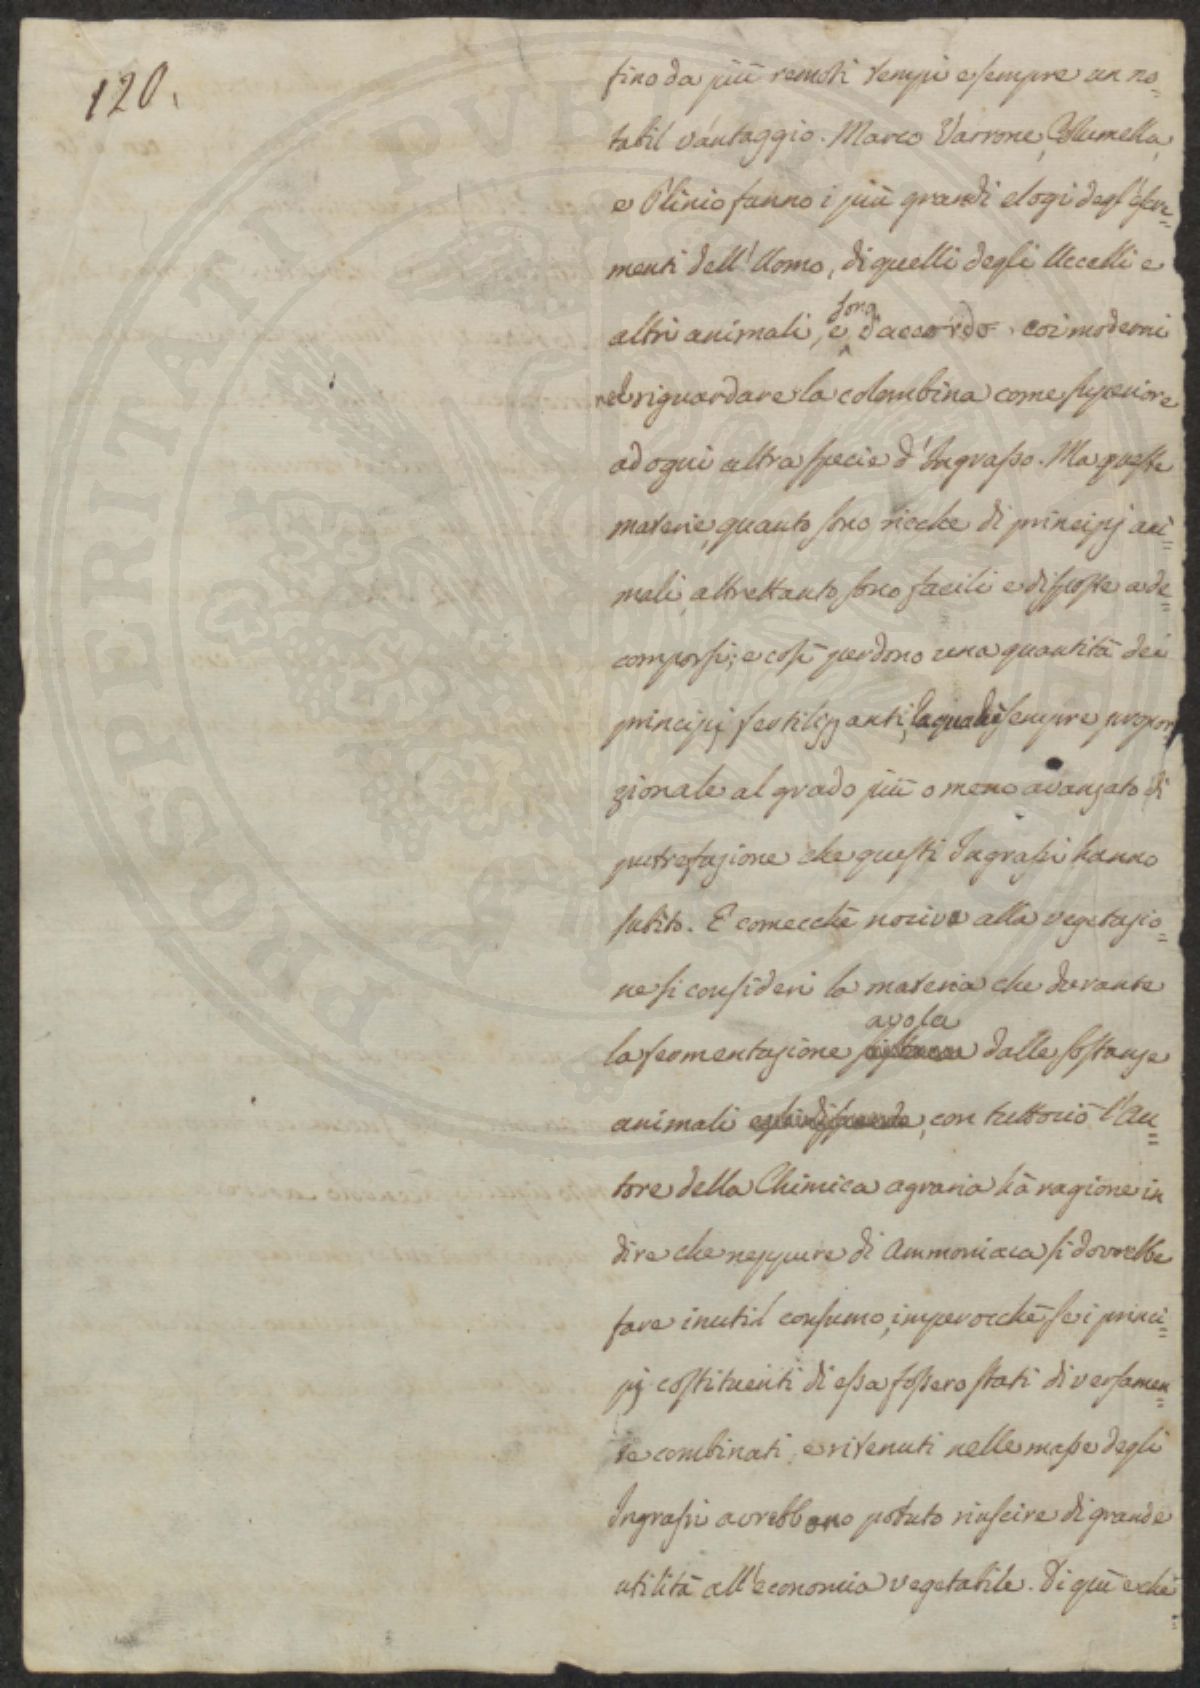 120.
fino da più remoti tempi e sempre un no=
tabil vantaggio. Marco Varrone, Columella,
e Plinio fanno i più grandi elogi degl'Escre=
menti dell'Uomo, di quelli degli Uccelli e
altri animali, e sono d'accordo coi moderni
nel riguardare la colombina come superiore
ad ogni altra specie d'Ingrasso. Ma queste
materie, quanto sono ricche di principj ani=
mali, altrettanto sono facili e disposte a de=
comporsi; e così perdono una quantità dei
principj fertilizzanti, la quale è sempre propor=
zionale al grado più o meno avanzato di
putrefazione che questi Ingrassi hanno
subito. E comecchè nociva alla vegetazio=
ne si consideri la materia che durante
la fermentazione svola dalle sostanze
animali, con tuttociò l'Au=
tore della Chimica agraria hà ragione in
dire che neppure di Ammoniaca si dovrebbe
fare inutil consumo, imperocchè se i princi=
pj costituenti di essa fossero stati diversamen=
te combinati, e ritenuti nelle masse degli
Ingrassi avrebbono potuto riuscire di grande
utilità all'economia vegetabile. Di quì è che
PROSPERITATI PUBLICAE